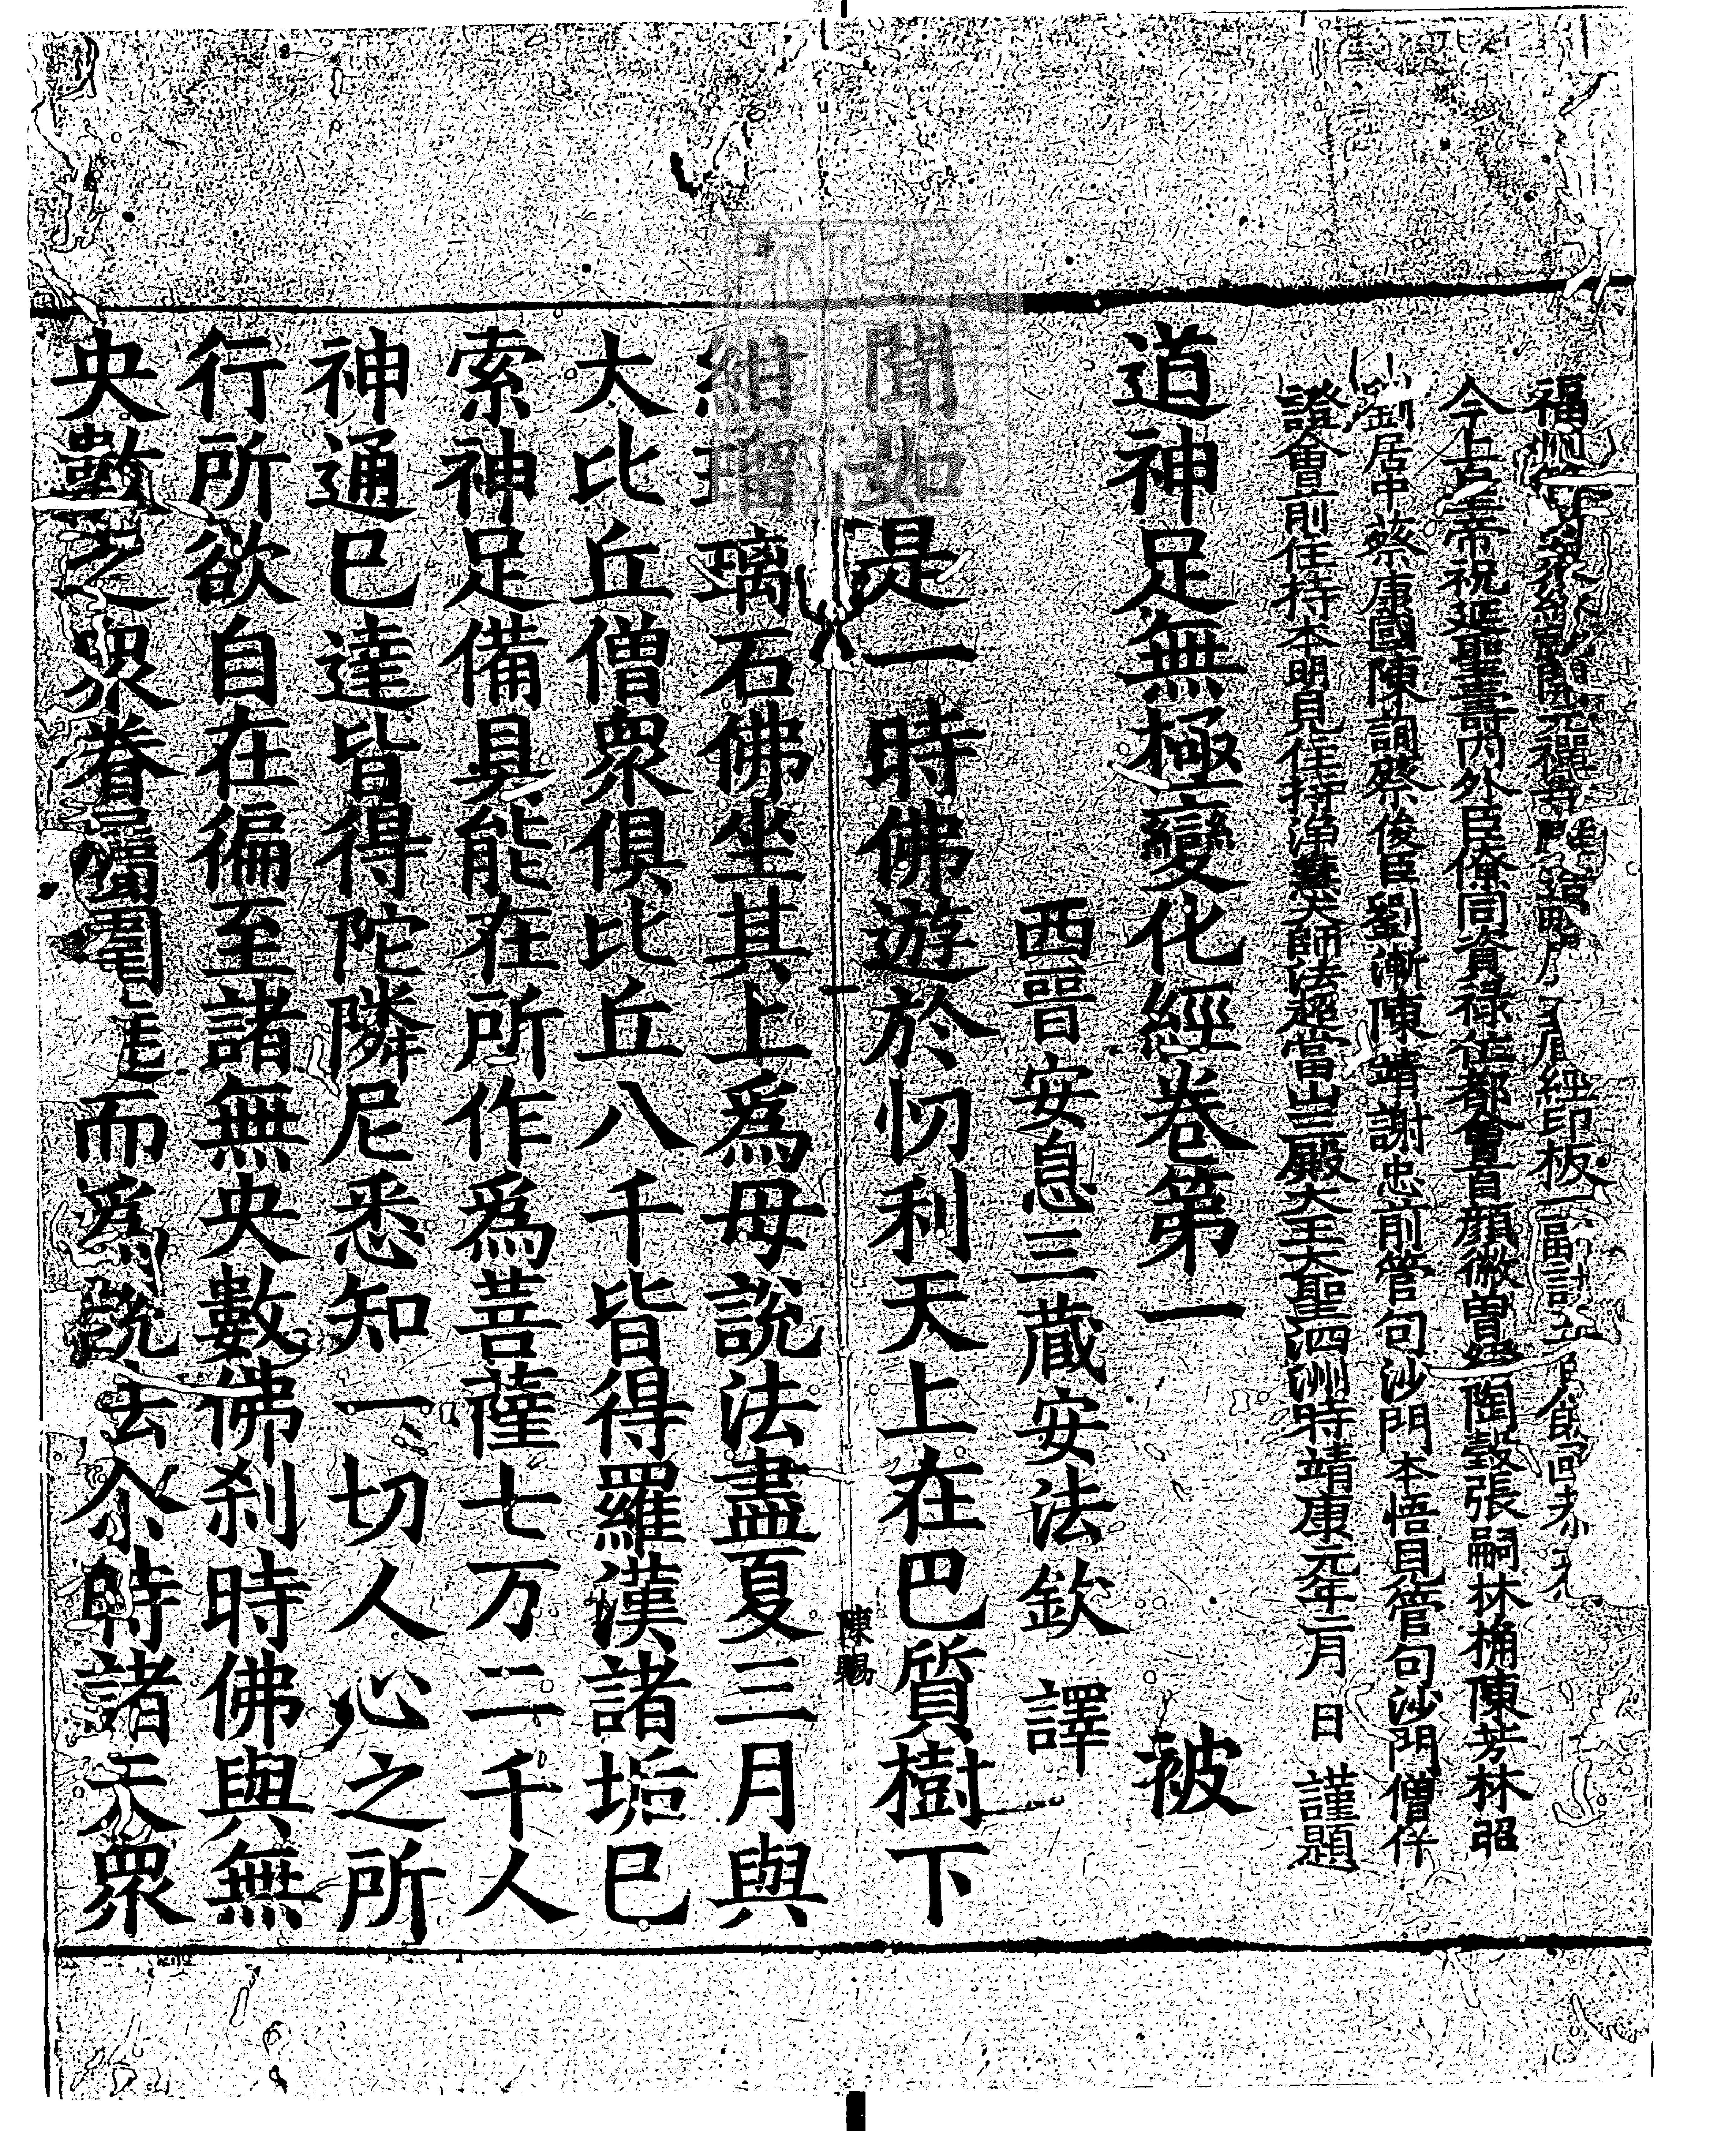 福州眾緣開元禪寺經印板一副
今上皇帝祝延聖壽內外臣僚同資祿位都會首顏徽曾經陶穀張嗣林桷陳芳林昭
劉居中蔡康國陳詢蔡俊臣劉漸陳靖謝忠前管句沙門本悟見管句沙門僧仟
證會前住持本明見住持淨慧大師法超當山三殿大王大聖泗洲時靖康元年二月日謹題
道神足無極變化經卷第一 被
西晉安息三蔵安法欽譯
聞如是一時佛遊於忉利天上在巴質樹下
陳賜
紺瑠璃石佛坐其上爲母說法盡夏三月與
大比丘僧眾俱比丘八千皆得羅漢諸垢已
索神足備具能在所作爲菩薩七万二千人
神通已達皆得陀隣尼悉知一切人心之所
行所欲自在徧至諸無央數佛刹時佛與無
央數之眾眷屬圍遶而爲說法尒時諸天眾